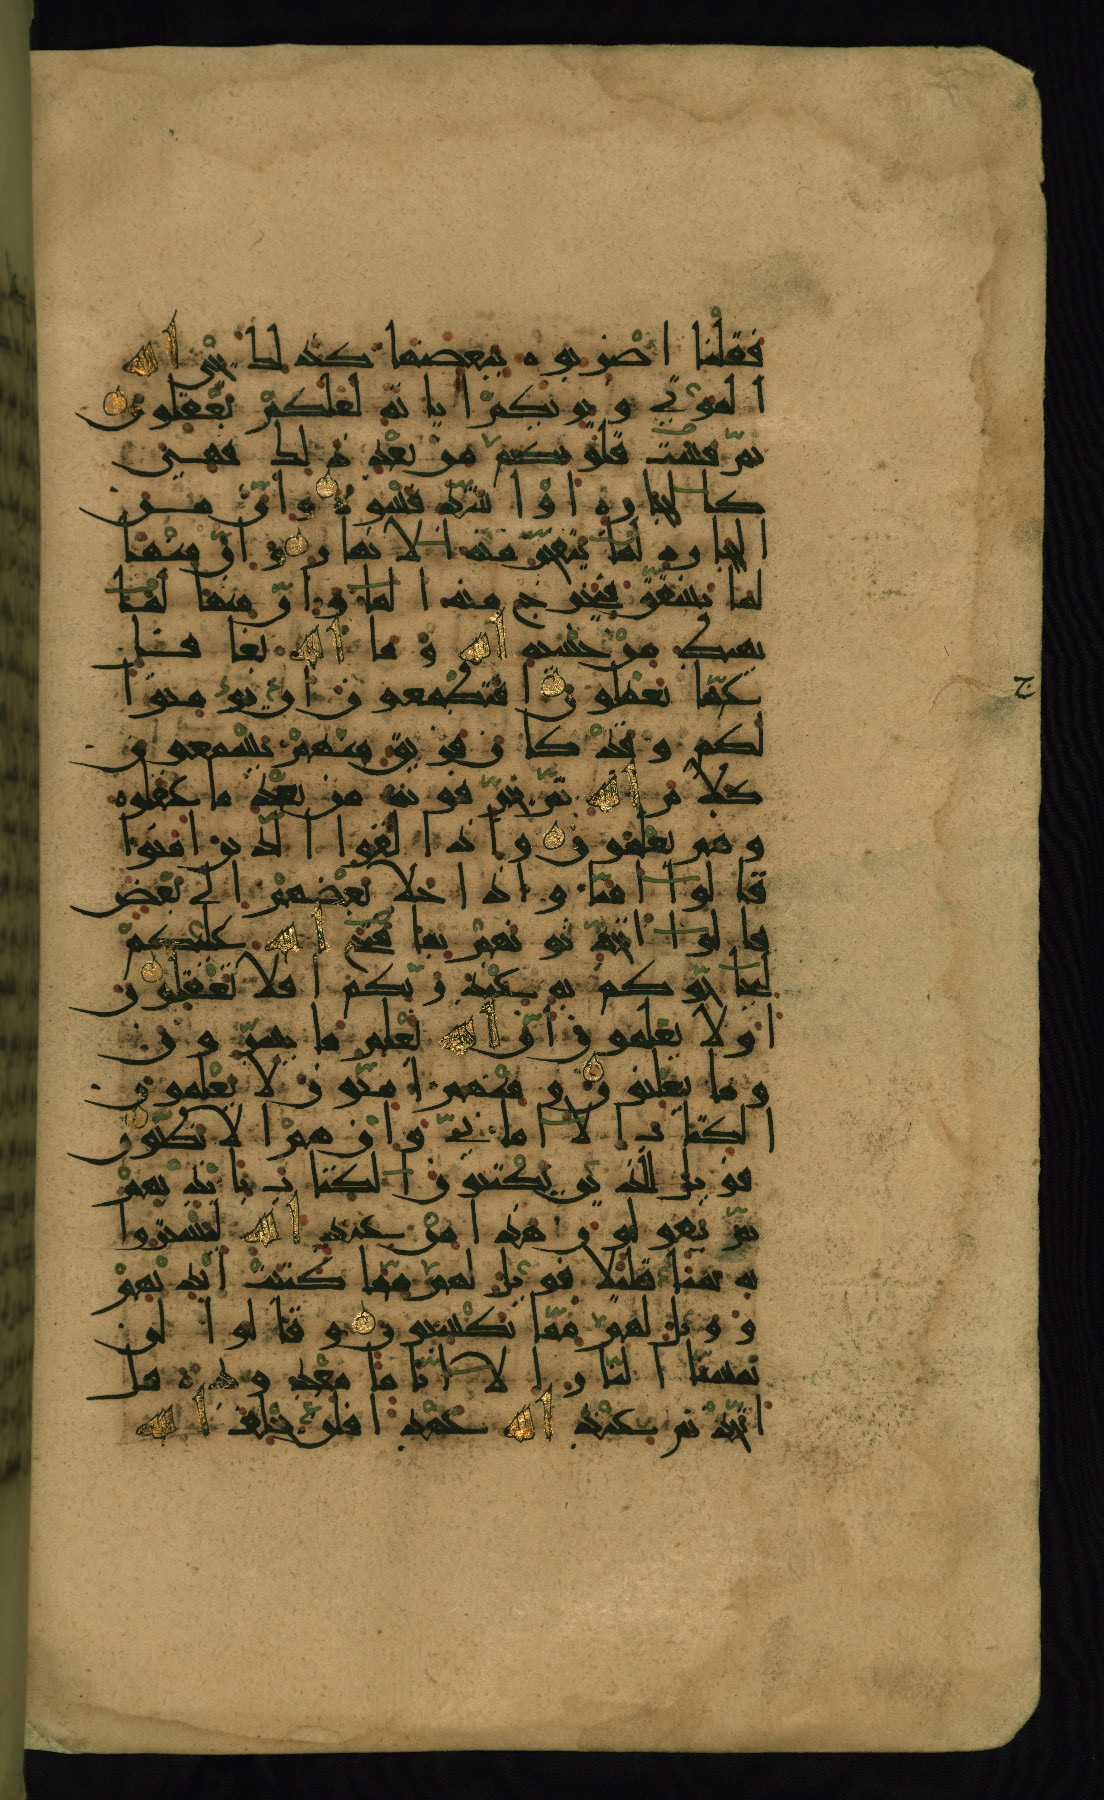 فقلنا اضربوه ببعضها كذلك يحي الله
الموتى ويريكم اياته لعلكم تعقلون
ثم قست قلوبكم من بعد ذلك فهي
كالحجارة او اشد قسوة وان من
الحجارة لما يتفجر منه الانهار وان منها
لما يشقق فيخرج منه الماء وان منها لما
يهبط من خشية الله وما الله بغافل
عما تعملون افتطمعون ان يؤمنوا
لكم وقد كان فريق منهم يسمعون
كلام الله ثم يحرفونه من بعد ما عقلوه
وهم يعلمون واذا لقوا الذين امنوا
قالوا امنا واذا خلا بعضهم الى بعض
قالوا اتحدثونهم بما فتح الله عليكم
ليحاجوكم به عند ربكم افلا تعقلون
اولا يعلمون ان الله يعلم ما يسرون
وما يعلنون ومنهم اميون لا يعلمون
الكتاب الا اماني وان هم الا يظنون
فويل للذين يكتبون الكتاب بايديهم
ثم يقولون هذا من عند الله ليشتروا
به ثمنا قليلا فويل لهم مما كتبت ايديهم
وويل لهم مما يكسبون وقالوا لن
تمسنا النار الا اياما معدودة قل
اتخذتم عند الله عهدا فلن يخلف الله
ح